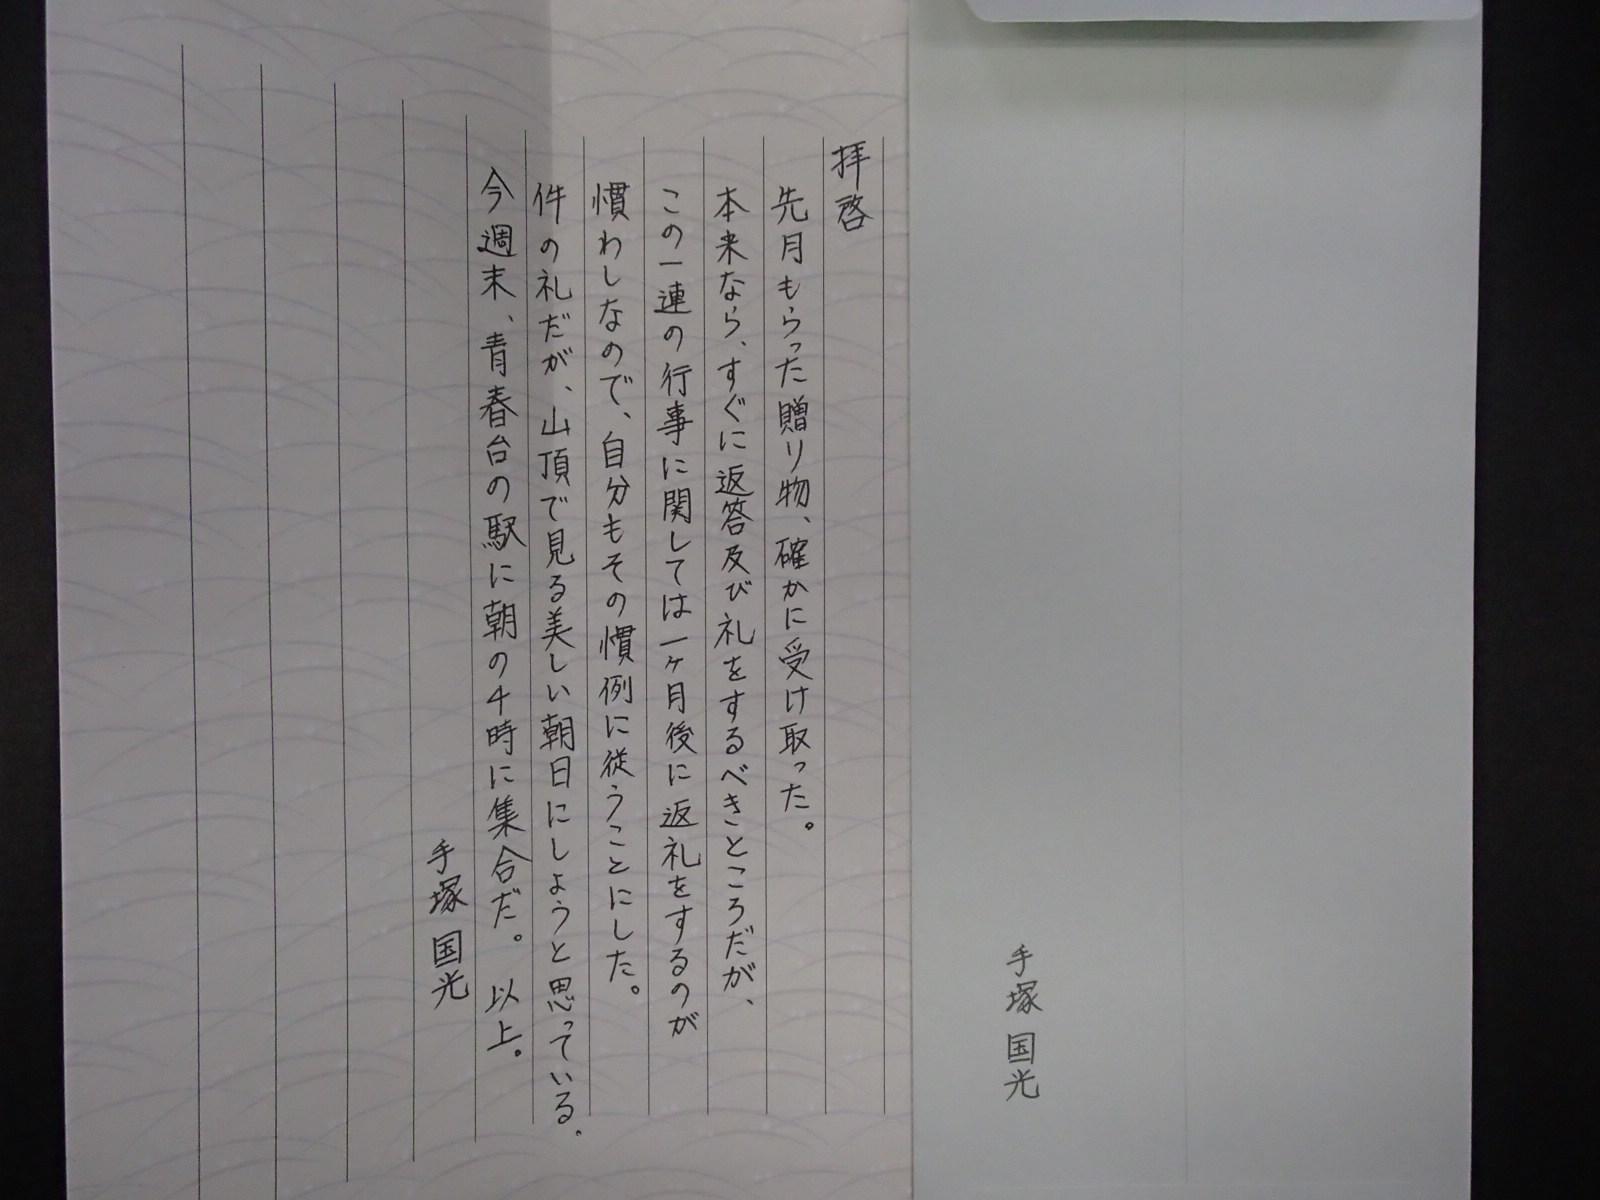 手塚国光
拝啓
先月もらった贈り物、確かに受け取った。
本来なら、すぐに返答及び礼をするべきところだが、
この一連の行事に関しては一ヶ月後に返礼をするのが
慣わしなので、自分もその慣例に従うことにした。
件の礼だが、山頂で見る美しい朝日にしようと思っている.
今週末、青春台の駅に朝の4時に集合だ。以上。
手塚国光